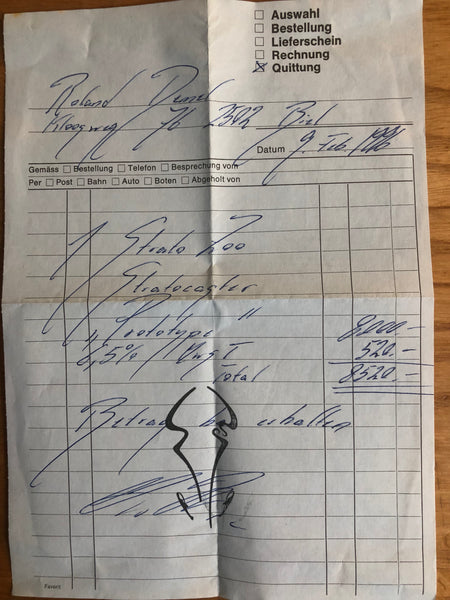 Auswahl
Bestellung
Lieferschein
Rechnung
Quittung
Roland
76 2502 Biel
Datum 9. Feb. 1996
Gemäss Bestellung Telefon Besprechung vom
Per Post Bahn Auto Boten Abgeholt von
1 Strato Zoo
Stratocaster
"Prototype" 8000.-
6,5% Wust 520.-
Total 8520.-
Betrag bar erhalten
Favorit